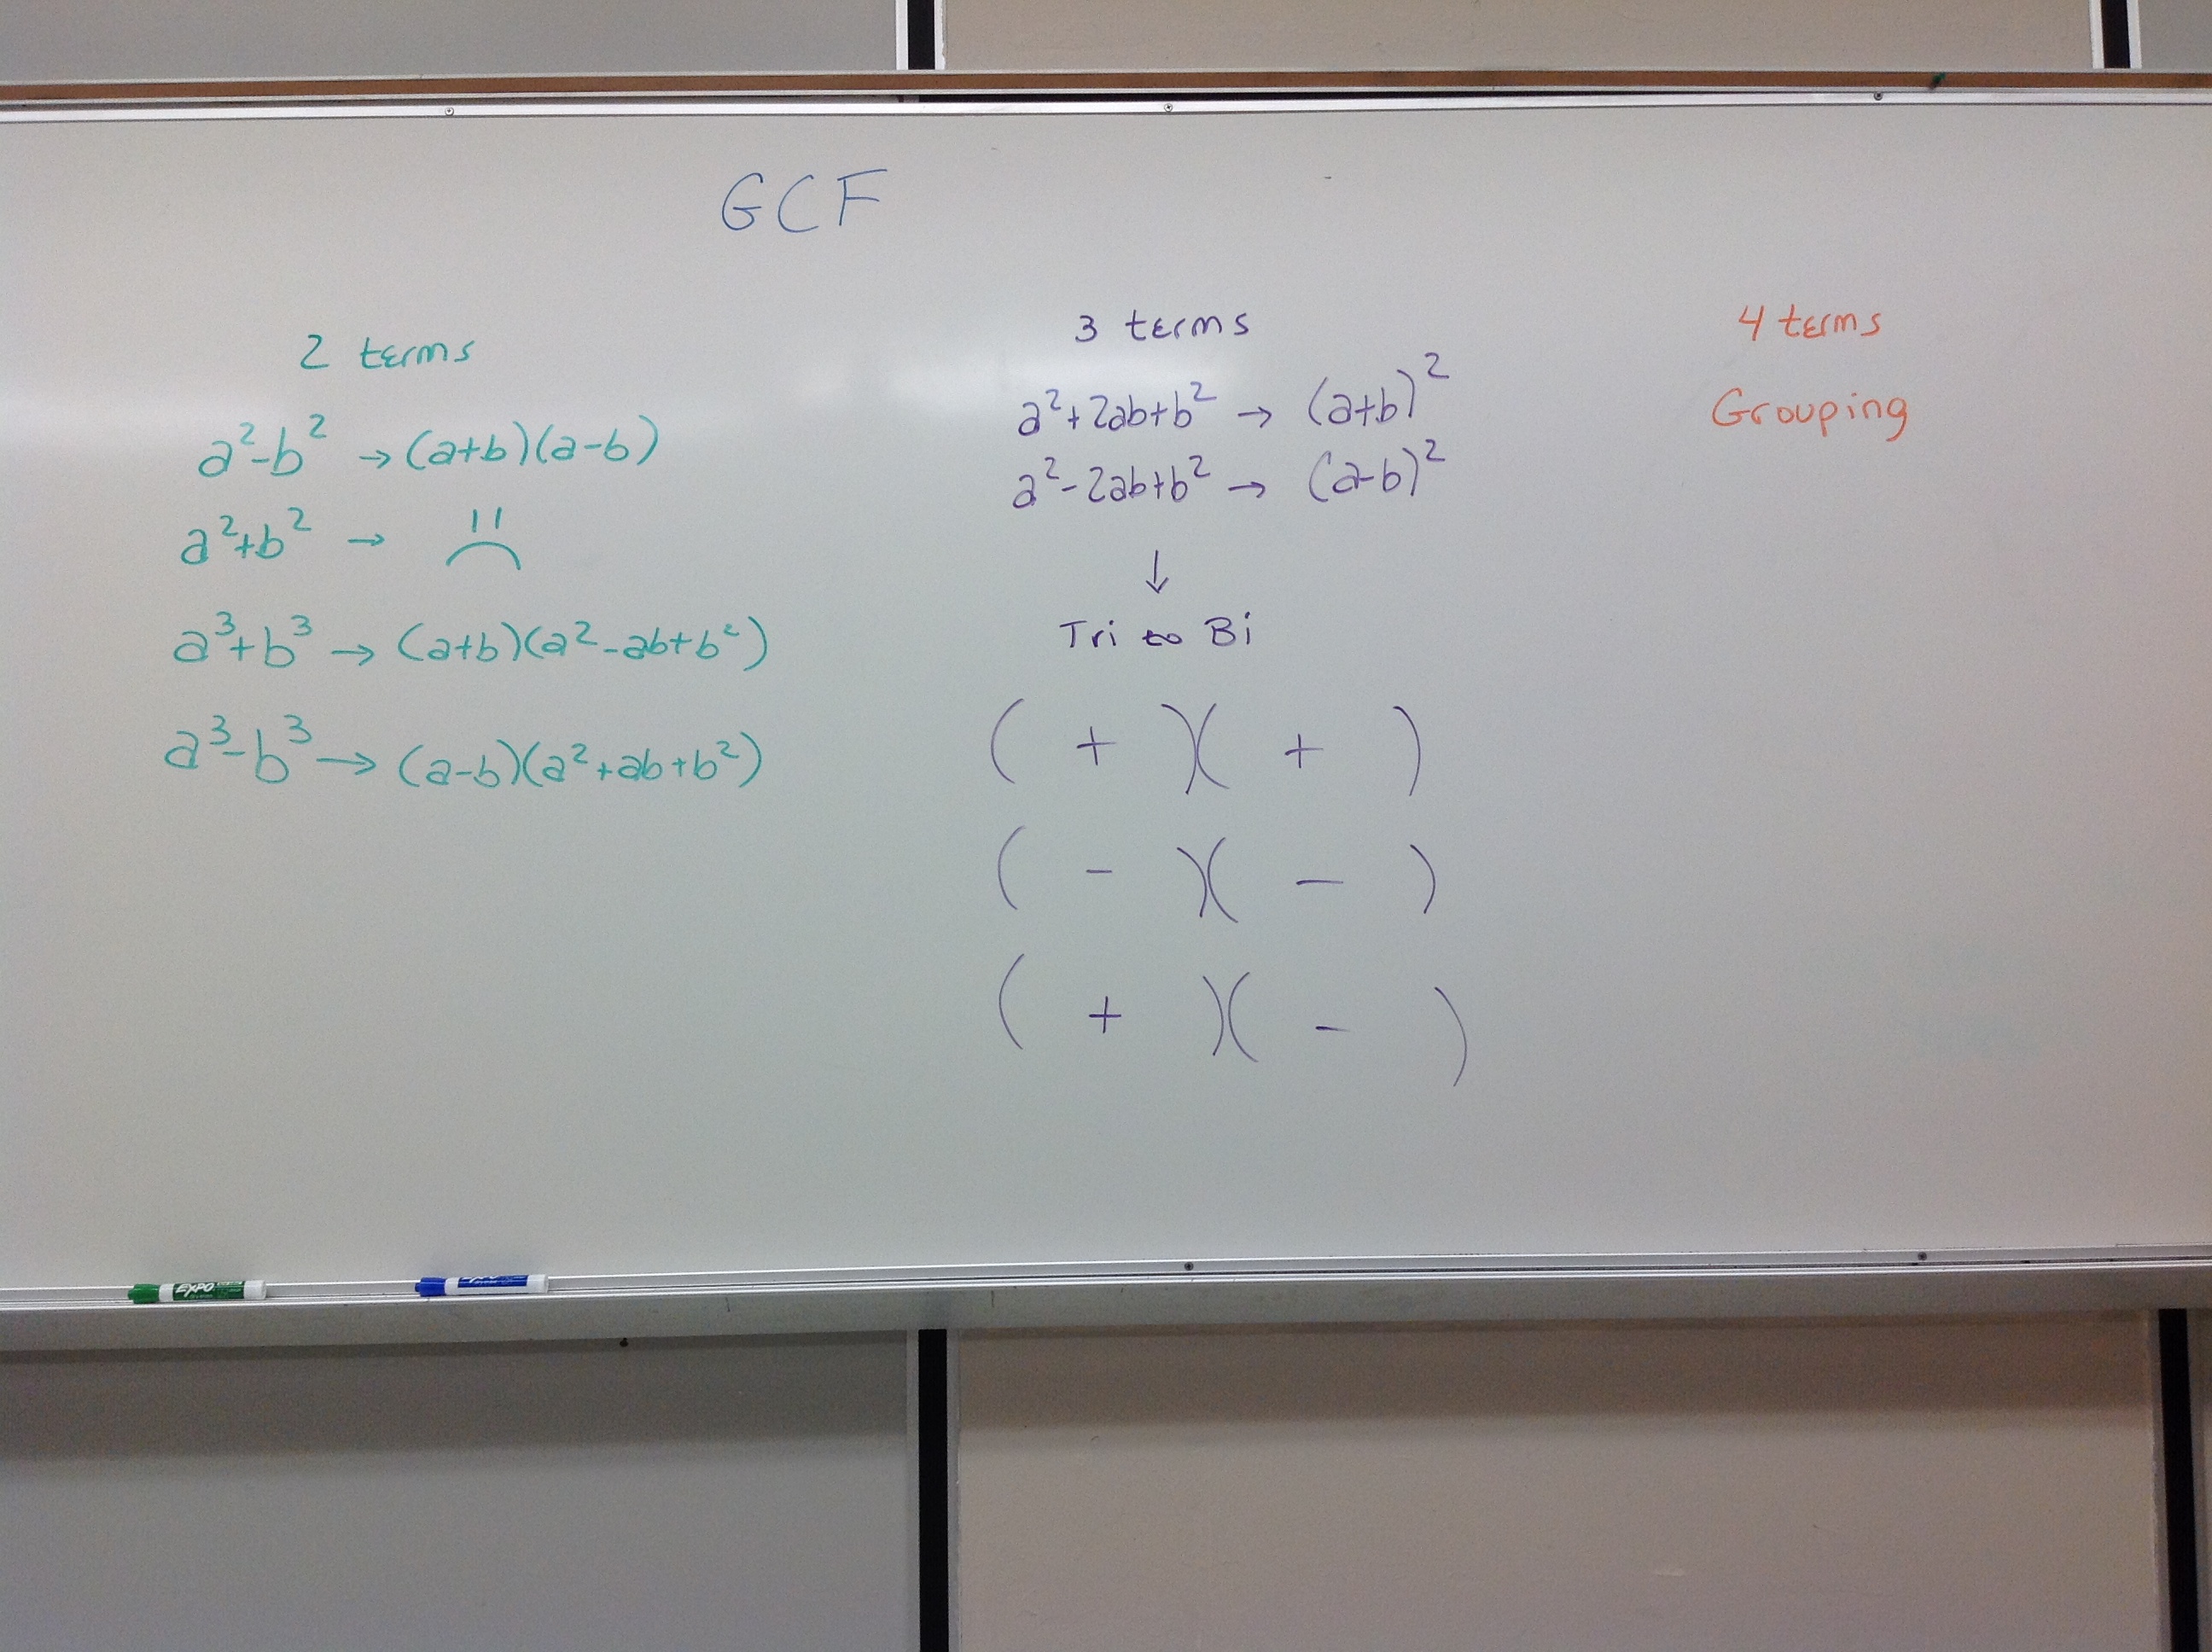 GCF
2 terms
a²-b² → (a+b)(a-b)
a²+b² →
a³+b³ → (a+b)(a²-ab+b²)
a³-b³ → (a-b)(a²+ab+b²)
3 terms
a²+2ab+b² → (a+b)²
a²-2ab+b² → (a-b)²
↓
Tri to Bi
( + )( + )
( - )( - )
( + )( - )
4 terms
Grouping
EXPO